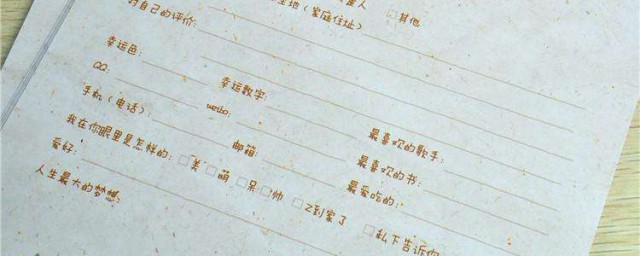 是人 □其他
地（家庭住址）
对自己的评价:
幸运色: 幸运数字:
QQ: weibo: 最喜欢的歌手:
手机（电话）: 邮箱: 最喜欢的书:
我在你眼里是怎样的: □美 □萌 □呆 □帅 □乙到家了 □私下告诉你
爱好: 最爱吃的:
人生最大的梦想: